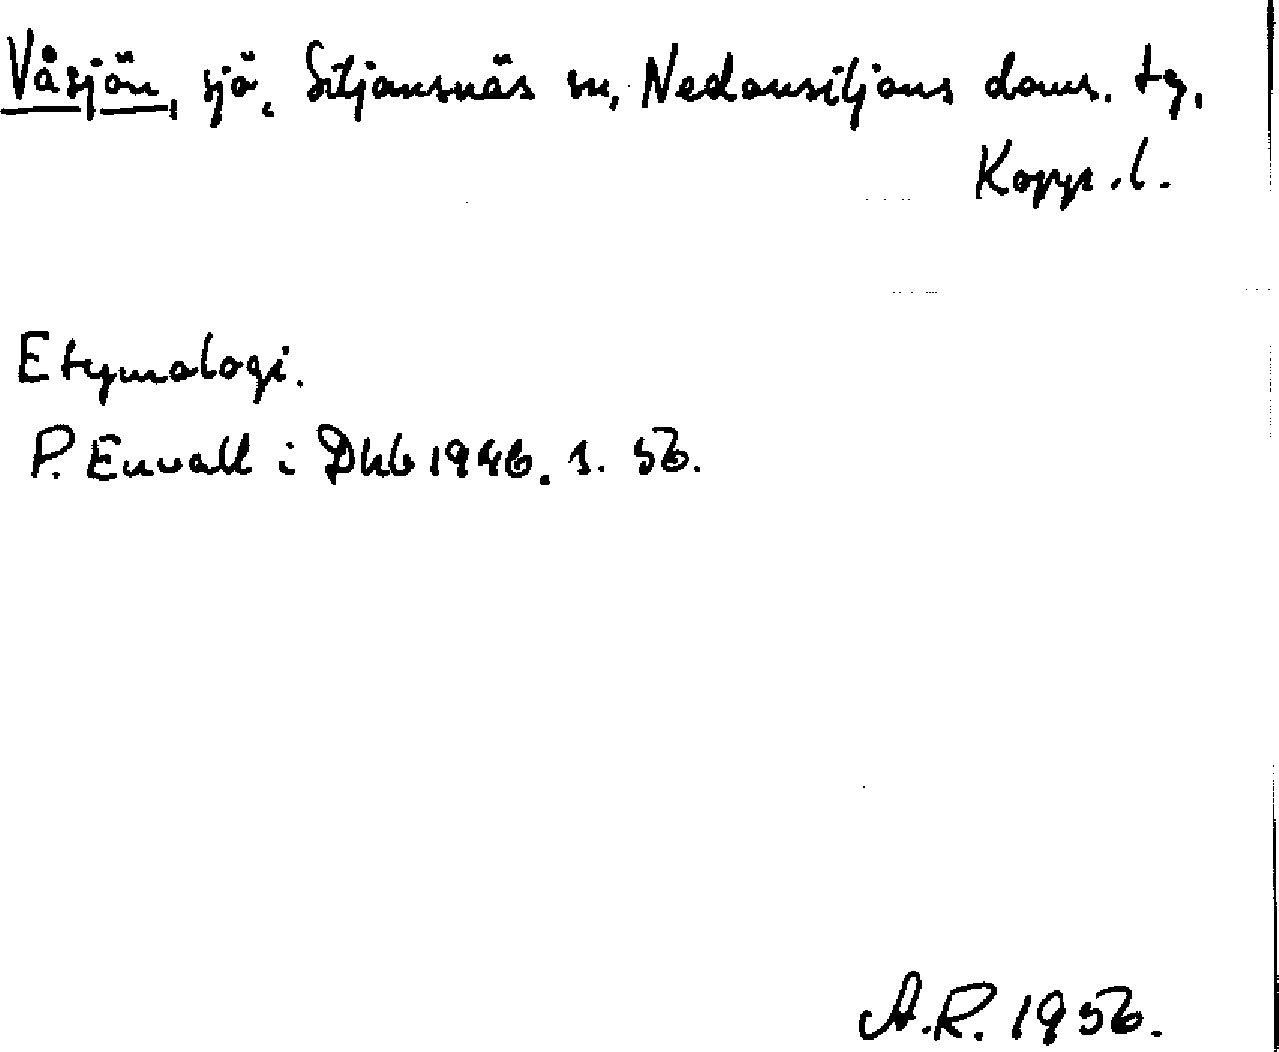 Våsjön, sjö, Siljansnäs sn, Nedansiljans doms. tg,
Kopp. l.
Etymologi.
P. Envall i Dhb 1946. s. 56.
A.R. 1956.